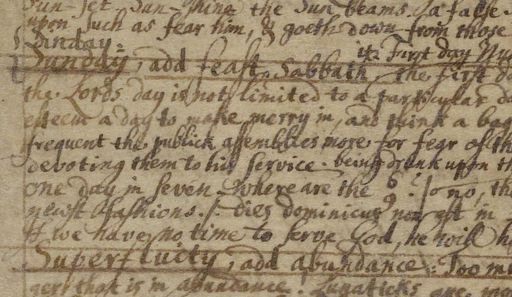 Sun-set Sun-shine the Sun beams. a false
upon such as fear him, & goeth down from those
Sunday.
it. First day
Sunday, add feast, Sabbath, the first da
the Lords day is not limited to a particular da
esteem a day to make merry in, and think a
frequent the publick assemblies more for fear of th
devoting them to his service being drunk upon th
one day in seven where are the 6. so no, th
newst fashions. dies dominicus non est in
If we have no time to serve God, he will h
Superfluity, add abundance. Too mu
gers that is in abundance. Lunaticks are